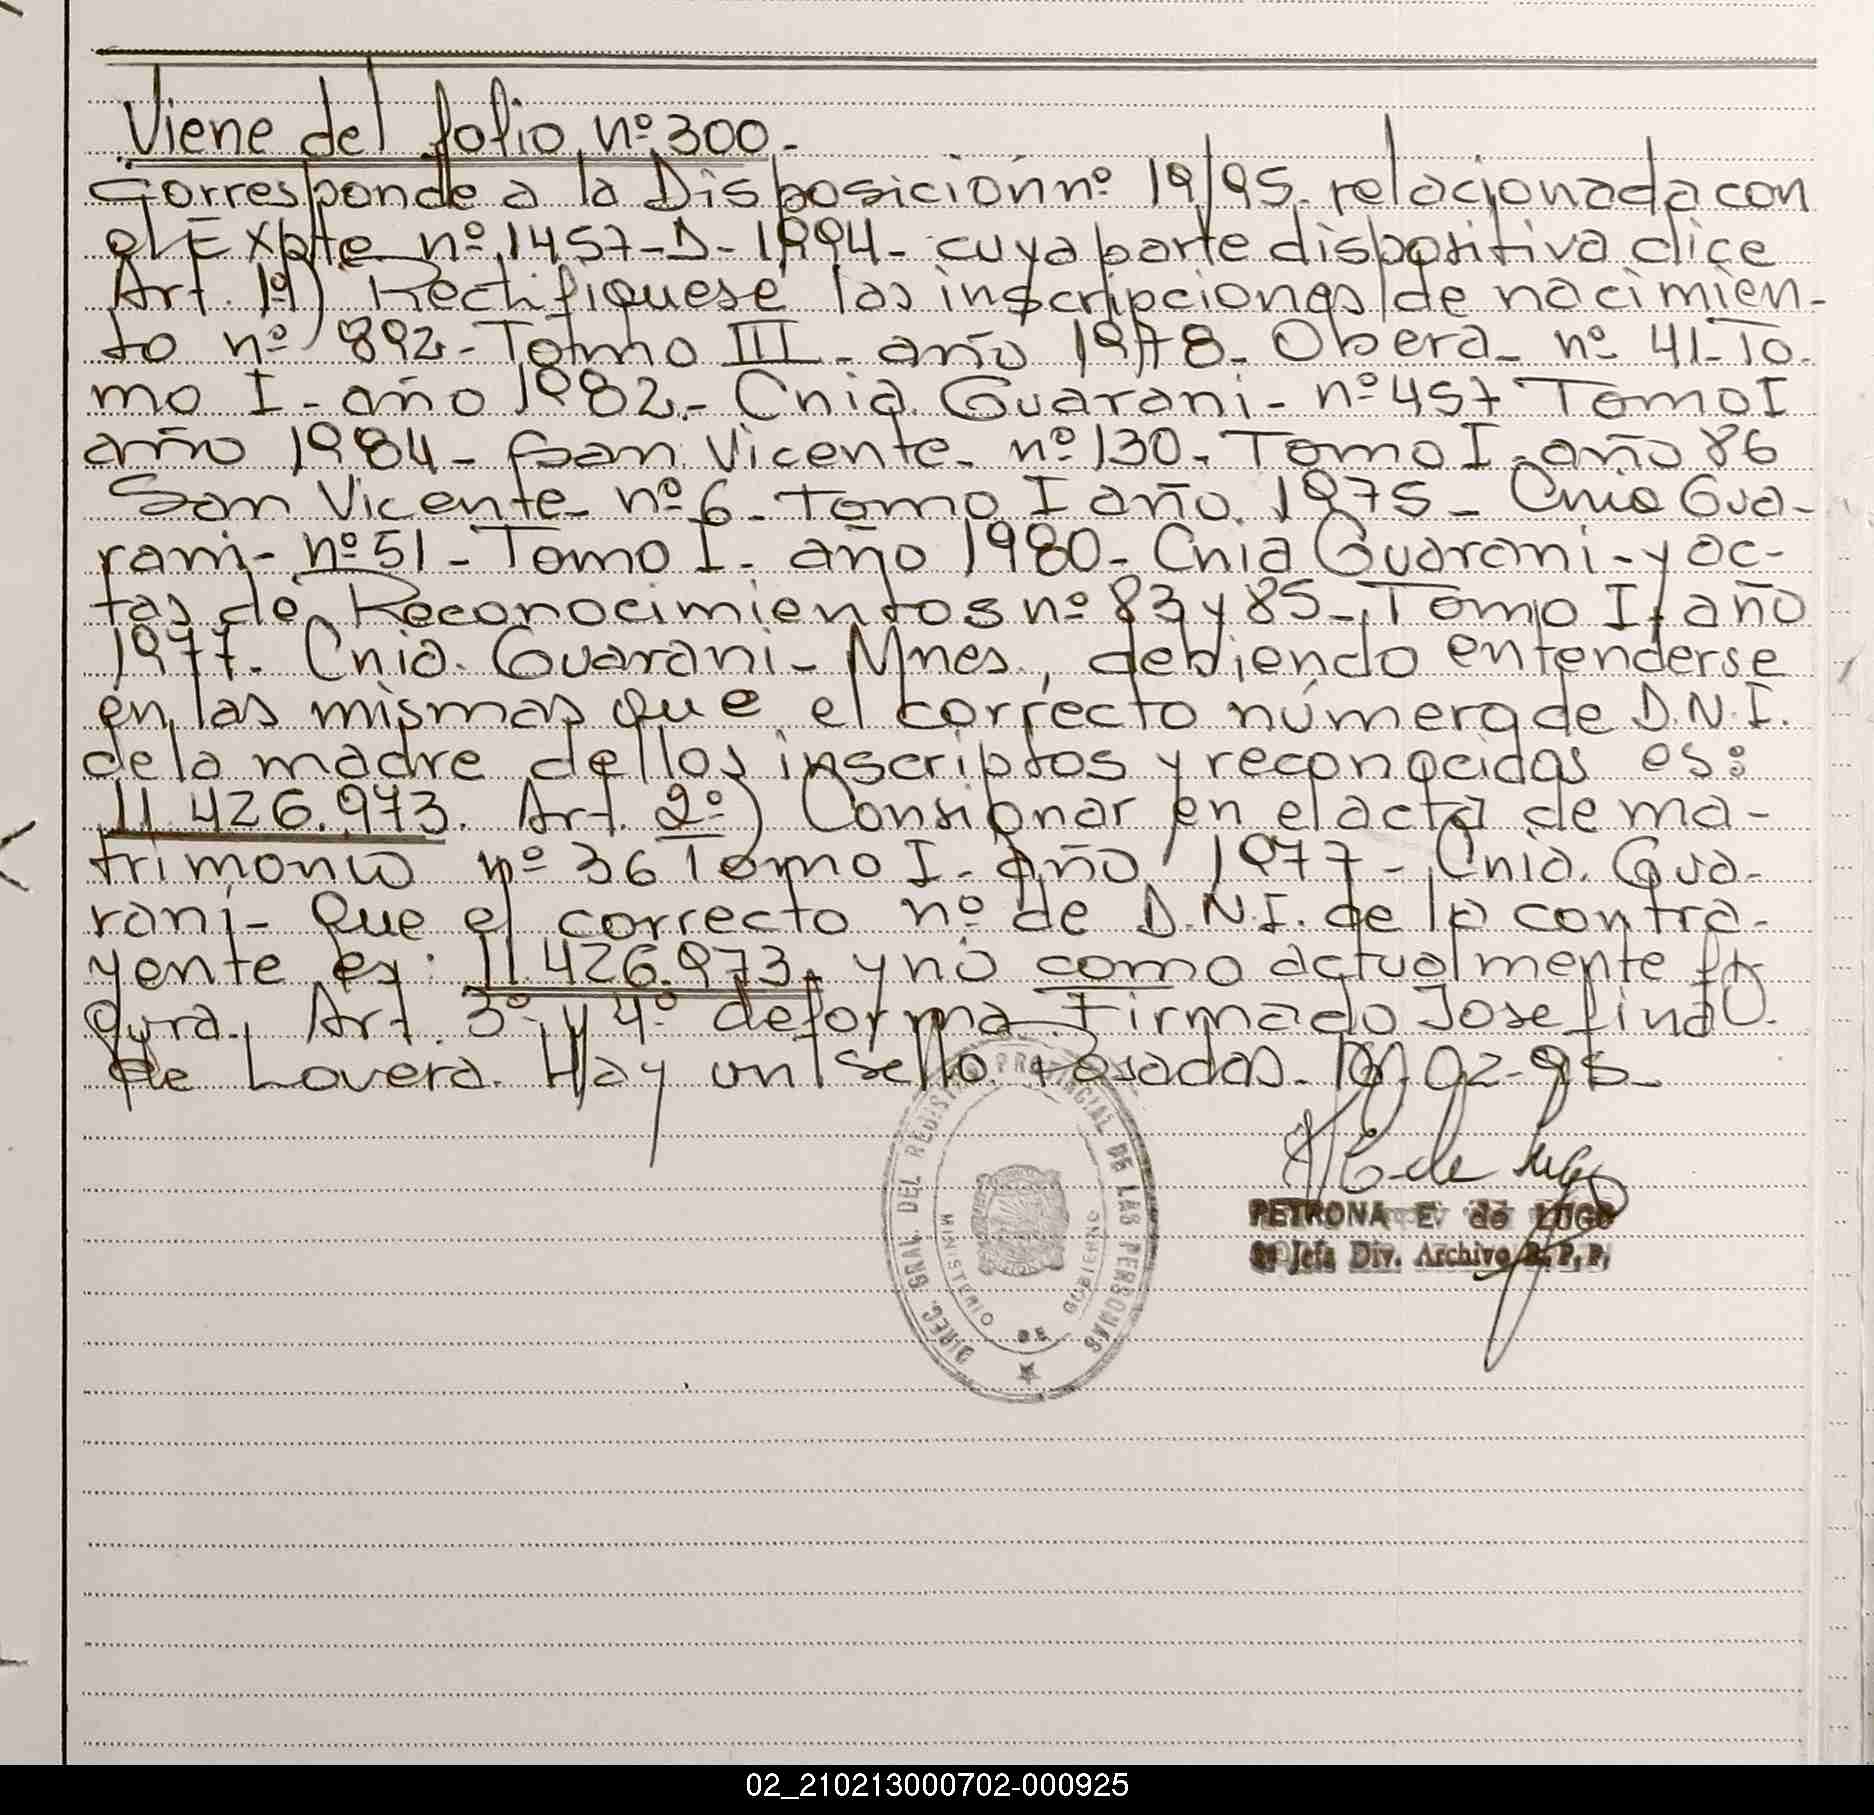 Viene del folio nº 300.-
Corresponde a la Disposición nº 19/95. relacionada con
el Expte nº 1457-D-1994- cuya parte dispositiva dice
Art. 1º) Rectifiquese las inscripciones de nacimien-
to nº 892- Tomo III- año 1978. Obera- nº 41- To.
mo I- año 1982.- Cnia. Guarani- nº 457 Tomo I
año 1984- San Vicente- nº 130. Tomo I. año 86
San Vicente- nº 6- Tomo I año. 1975- Cnia Gua-
rani- nº 51- Tomo I. año 1980- Cnia Guarani- y ac-
tas de Reconocimientos nº 83 y 85- Tomo I. año
1977. Cnia. Guarani- Mnes, debiendo entenderse
en las mismas que el correcto número de D.N.I.
de la madre de los inscriptos y reconocidos es:
11.426.973. Art. 2º) Consignar en el acta de ma-
trimonio nº 36 Tomo I- año 1977- Cnia. Gua-
rani- que el correcto nº de D.N.I. de la contra-
yente es: 11.426.973. y no como actualmente fi
gura. Art. 3º y 4º de forma. Firmado Josefina O.
de Lovera. Hay un sello. Posadas. 10-02-95-
DIREC. GRAL. DEL REGISTRO PROVINCIAL DE LAS PERSONAS
MINISTERIO DE GOBIERNO
PETRONA E. de LUGO
Jefa Div. Archivo R.P.P.
02_210213000702-000925